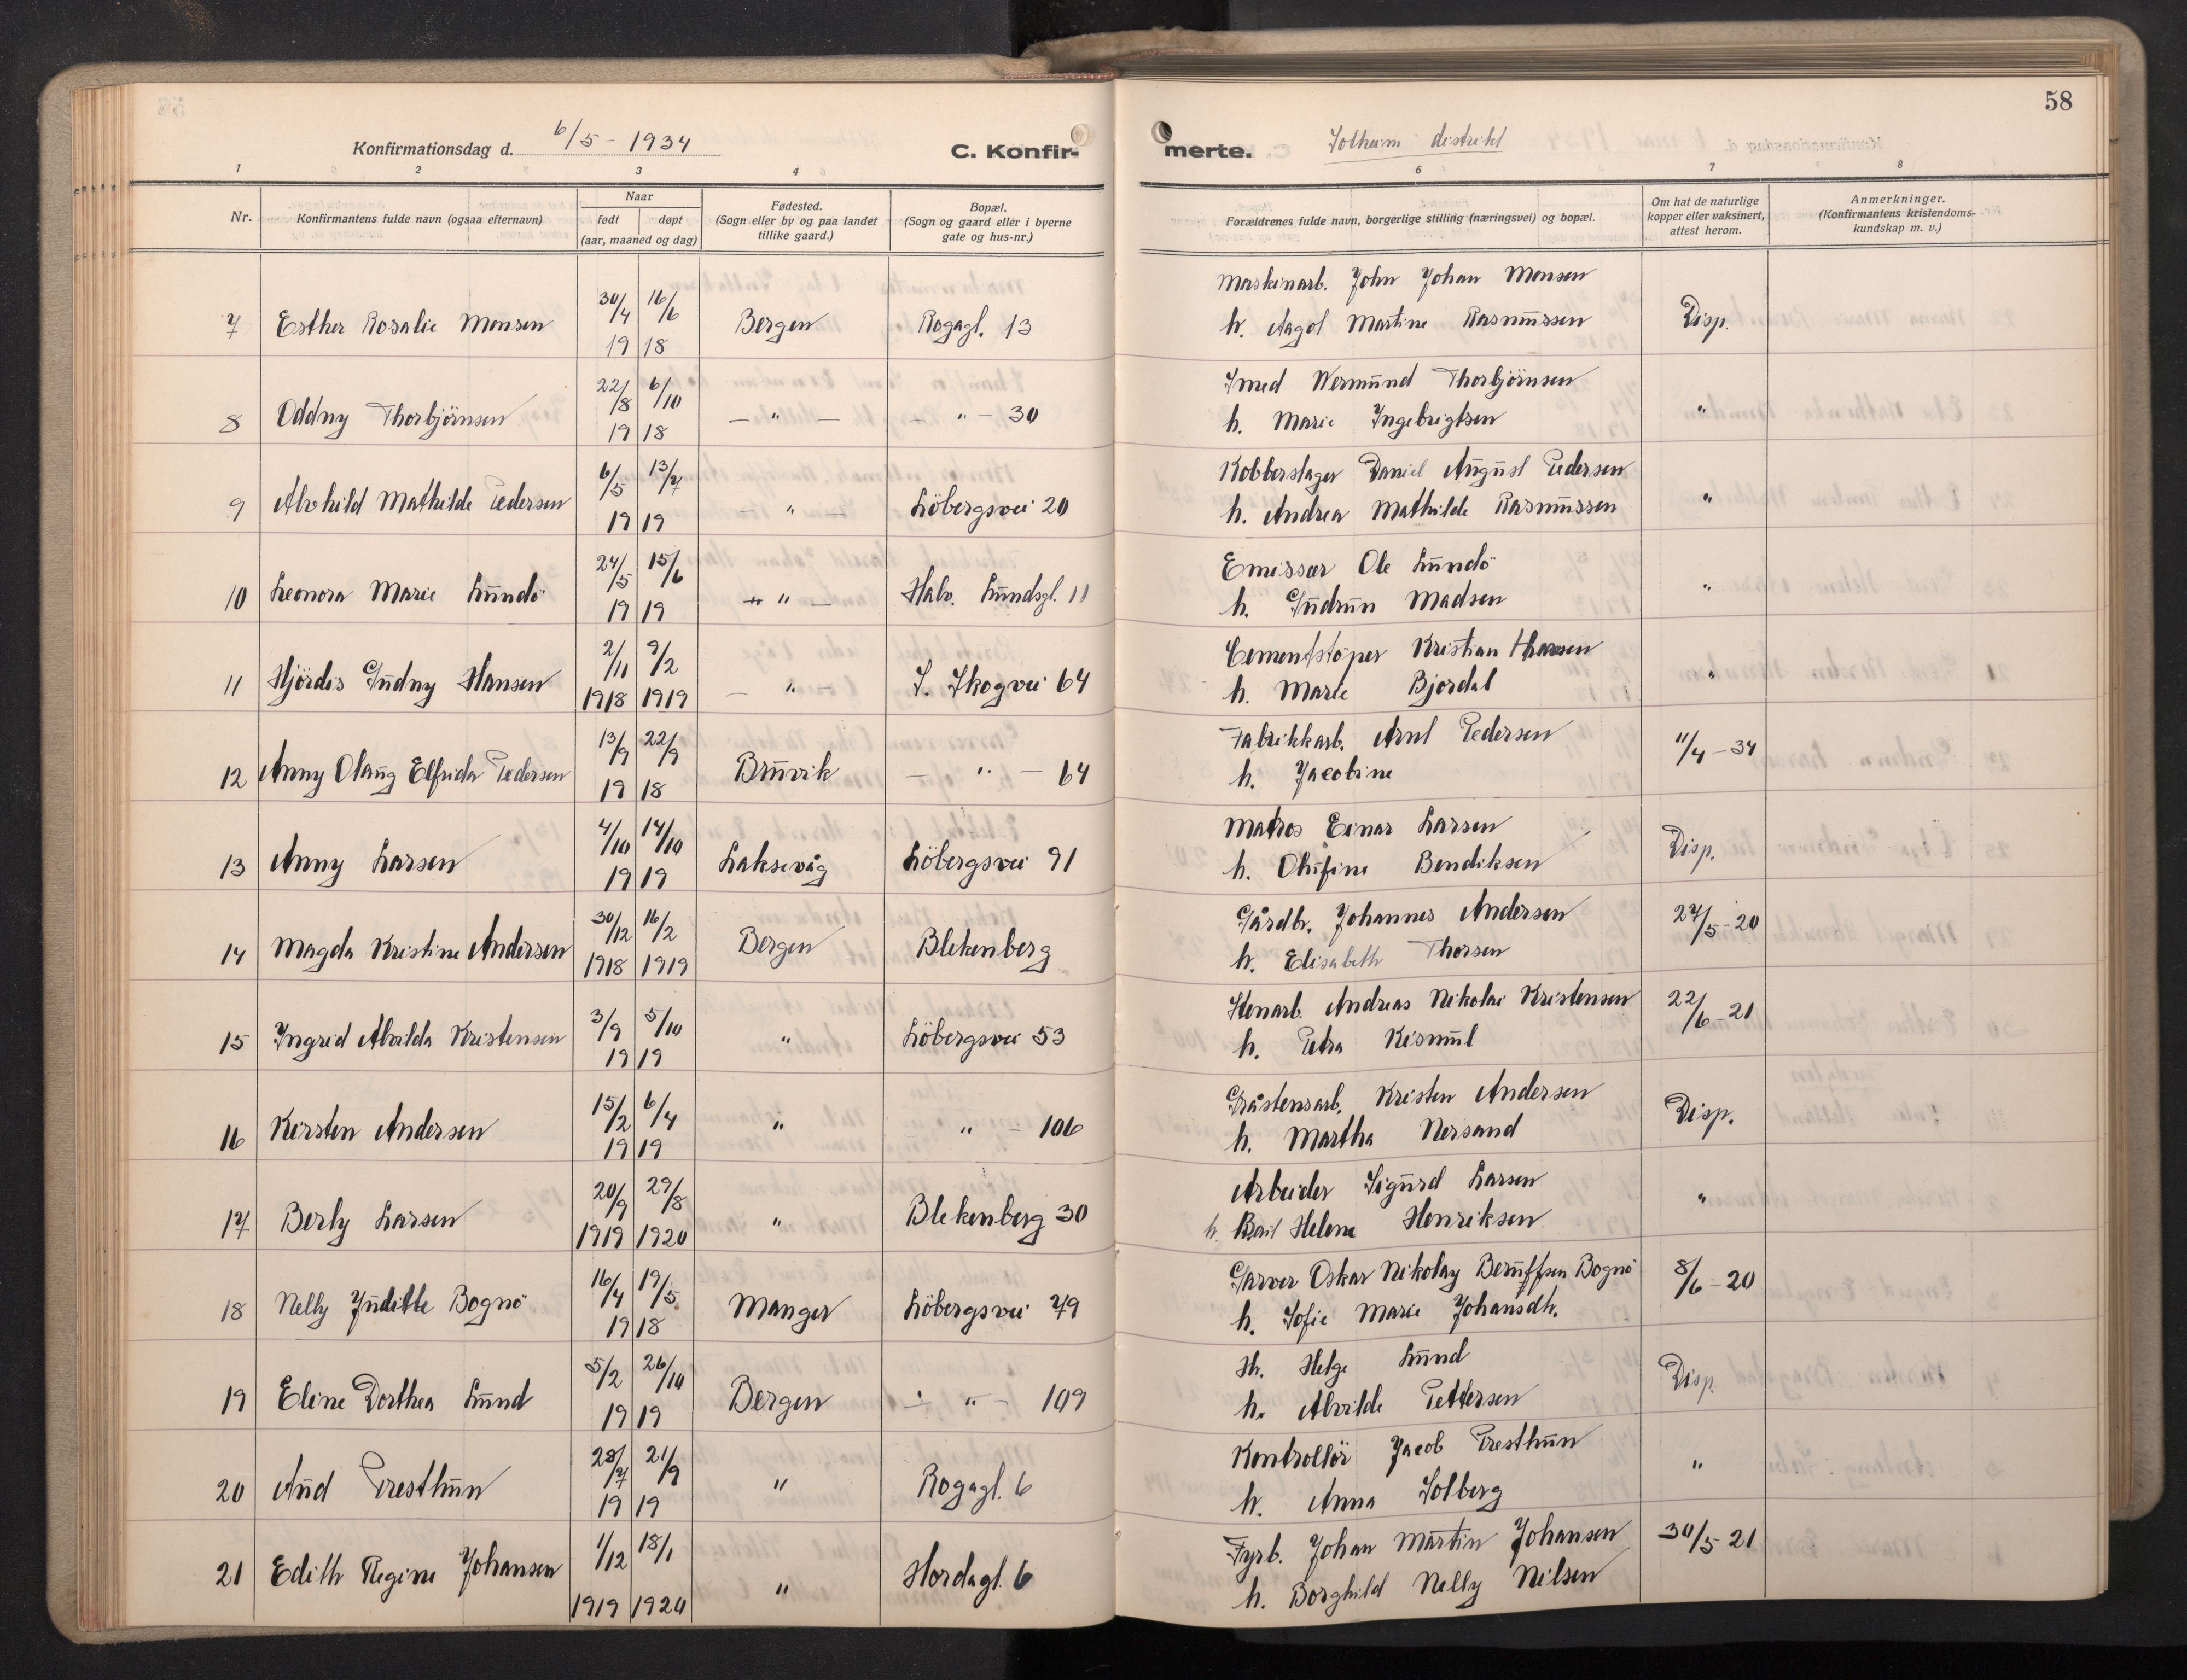 58
Konfirmationsdag d. 6/5 - 1934
C. Konfir-
merte. Solheim distrikt
1 2 3 4 5 6 7 8
Nr.
Konfirmantens fulde navn (ogsaa efternavn)
Naar
født døpt
(aar, maaned og dag)
Fødested.
(Sogn eller by og paa landet
tillike gaard.)
Bopæl.
(Sogn og gaard eller i byerne
gate og hus-nr.)
Forældrenes fulde navn, borgerlige stilling (næringsvei) og bopæl.
Om hat de naturlige
kopper eller vaksinert,
attest herom.
Anmerkninger.
(Konfirmantens kristendoms-
kundskap m. v.)
Maskinarb. John Johan Monsen
7 Esther Rosalie Monsen 30/4 16/6 Bergen Rogagt. 13 h. Aagot Martine Rasmussen Disp.
19 18
22/8 6/10 Smed Wermund Thorbjörnsen
8 Oddny Thorbjörnsen — " — — " — 30 h. Marie Ingebrigtsen "
19 18
6/5 13/7 Kobberslager Daniel August Pedersen
9 Alvhild Mathilde Pedersen — " — Löbergsvei 20 h. Andrea Mathilde Rasmussen "
19 19
24/5 15/6 Emissær Ole Lundö
10 Leonora Marie Lundö — " — Halv. Lundsgt. 11 h. Gudrun Madsen "
19 19
2/11 9/2 Cementstöper Kristian Hansen
11 Hjördis Gudny Hansen — " S. Skogvei 64 h. Marie Bjordal "
1918 1919
13/9 22/9 Fabrikkarb. Arnt Pedersen 11/4 - 34
12 Anny Olaug Elfrida Pedersen Bruvik — " — 64 h. Jacobine
19 18
4/10 14/10 Matros Einar Larsen
13 Anny Larsen Laksevåg Löbergsvei 91 h. Olufine Bendiksen Disp.
19 19
30/12 16/2 Gårdbr. Johannes Andersen 27/5 - 20
14 Magda Kristine Andersen Bergen Blekenberg h. Elisabeth Thorsen
1918 1919
3/9 5/10 Stenarb. Andreas Nikolai Kristensen 22/6 - 21
15 Ingrid Alvilda Kristensen " Löbergsvei 53 h. Petra Kismul
19 19
15/2 6/4 Gråstensarb. Kristen Andersen
16 Kersten Andersen " " — 106 h. Martha Nersand Disp.
19 19
20/9 29/8 Arbeider Sigurd Larsen
17 Berly Larsen " Blekenberg 30 h. Berit Helene Henriksen "
1919 1920
16/4 19/5 Garver Oskar Nikolay Berntsen Bognö 8/6 - 20
18 Nelly Juditte Bognö Manger Löbergsvei 79 h. Sofie Marie Johansdtr.
19 18
5/2 26/10 Hr. Helge Lund
19 Eline Dorthea Lund Bergen — " — 109 h. Alvilde Pettersen Disp.
19 19
28/7 21/9 Kontrollör Jacob Presthun
20 Aud Presthun " Rogagt. 6 h. Anna Solberg "
19 19
1/12 18/1 Fyrb. Johan Martin Johansen 30/5 21
21 Edith Regine Johansen " Hordagt. 6 h. Borghild Nelly Nilsen
1919 1920